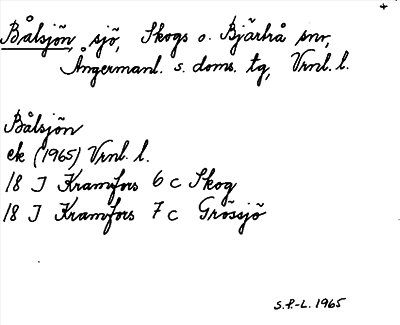 Bålsjön, sjö, Skogs o. Bjärtrå snr,
Ångermanl. s. doms. tg, Vrnl. l.
Bålsjön
ek (1965) Vrnl. l.
18 I Kramfors 6 c Skog
18 I Kramfors 7 c Grössjö
S.P.-L. 1965